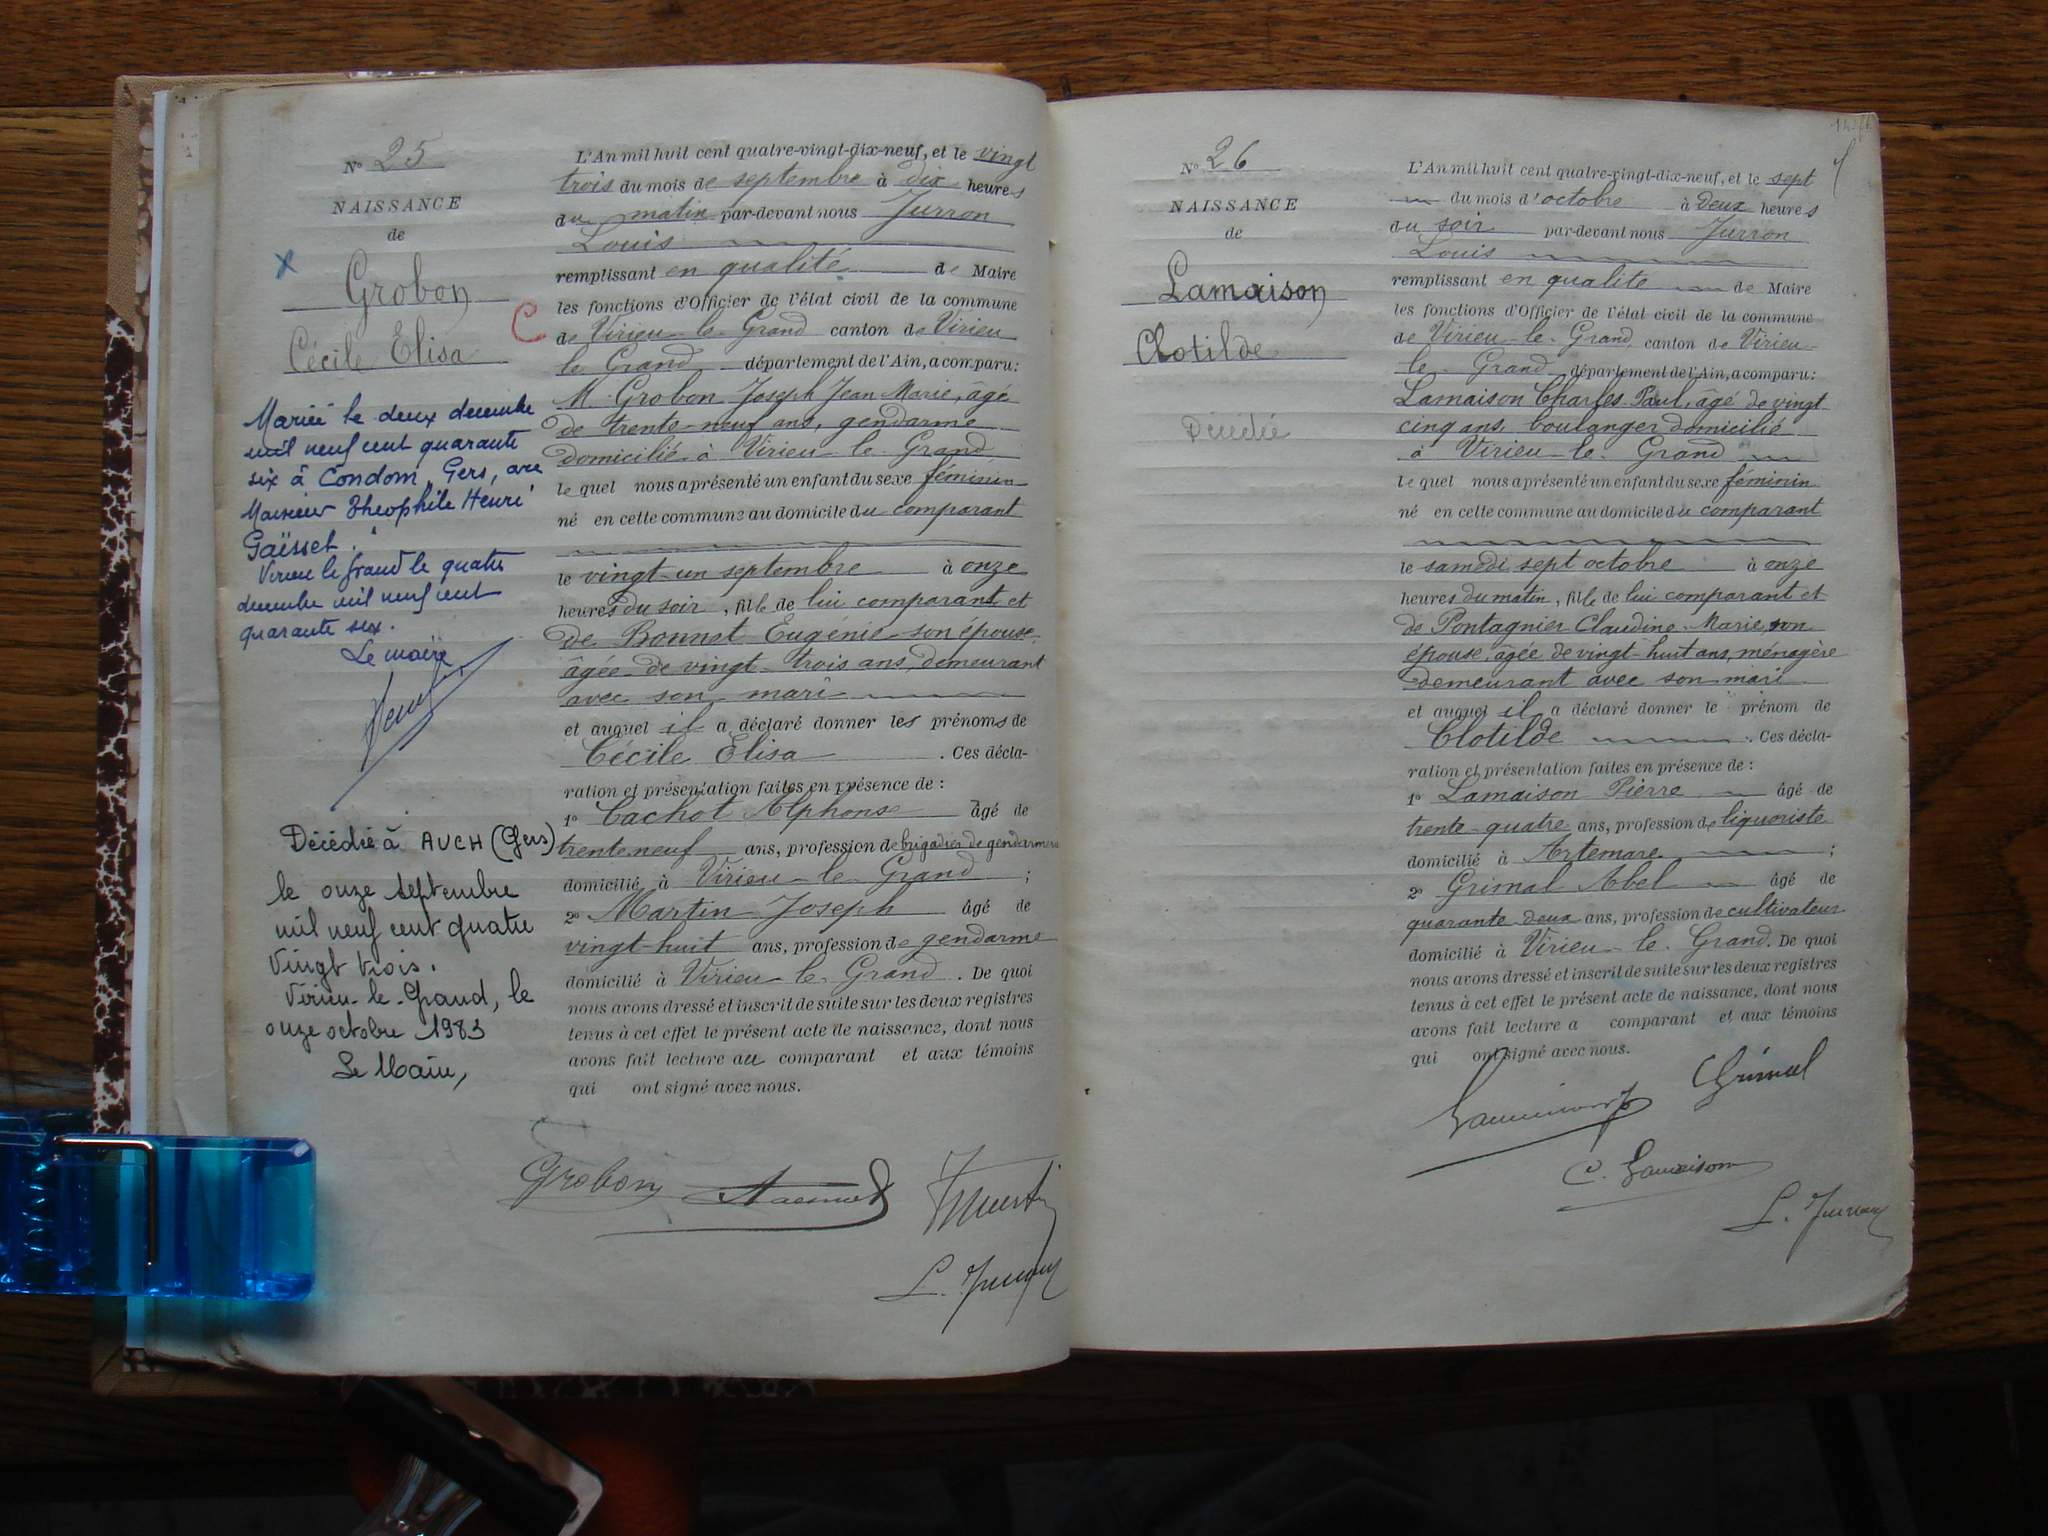 N° 25
NAISSANCE
de
Grobon
Cécile Elisa
Mariée le deux decembre
mil neuf cent quarante
six à Condom, Gers, avec
Monsieur Théophile Henri
Gaïsset.
Virieu le Grand le quatre
decembre mil neuf cent
quarante six.
Le maire
Décédée à AUCH (Gers)
le onze septembre
mil neuf cent quatre
vingt trois.
Virieu-le-Grand, le
onze octobre 1983
Le Maire,
C
L'An mil huit cent quatre-vingt-dix-neuf, et le vingt
trois du mois de septembre à dix heures
du matin par-devant nous Jurron
Louis
remplissant en qualité de Maire
les fonctions d'Officier de l'état civil de la commune
de Virieu-le-Grand canton de Virieu
le Grand département de l'Ain, a comparu :
M. Grobon Joseph Jean Marie, âgé
de trente-neuf ans, gendarme
domicilié à Virieu-le-Grand
lequel nous a présenté un enfant du sexe féminin
né en cette commune au domicile du comparant
le vingt-un septembre à onze
heures du soir, fille de lui comparant et
de Bonnet Eugénie son épouse
âgée de vingt-trois ans, demeurant
avec son mari
et auquel il a déclaré donner les prénoms de
Cécile Elisa . Ces décla-
ration et présentation faites en présence de :
1° Cachot Alphonse âgé de
trente neuf ans, profession de brigadier de gendarmerie
domicilié à Virieu-le-Grand ;
2° Martin Joseph âgé de
vingt-huit ans, profession de gendarme
domicilié à Virieu-le-Grand . De quoi
nous avons dressé et inscrit de suite sur les deux registres
tenus à cet effet le présent acte de naissance, dont nous
avons fait lecture au comparant et aux témoins
qui ont signé avec nous.
Grobon
L. Jurron
N° 26
NAISSANCE
de
Lamaison
Clotilde
Décédée
L'An mil huit cent quatre-vingt-dix-neuf, et le sept
du mois d'octobre à deux heures
du soir par-devant nous Jurron
Louis
remplissant en qualité de Maire
les fonctions d'Officier de l'état civil de la commune
de Virieu-le-Grand, canton de Virieu-
le-Grand département de l'Ain, a comparu :
Lamaison Charles Paul, âgé de vingt
cinq ans, boulanger domicilié
à Virieu-le-Grand
lequel nous a présenté un enfant du sexe féminin
né en cette commune au domicile du comparant
le samedi sept octobre à onze
heures du matin, fille de lui comparant et
de Pontagnier Claudine-Marie, son
épouse, âgée de vingt-huit ans, ménagère
demeurant avec son mari
et auquel il a déclaré donner le prénom de
Clotilde . Ces décla-
ration et présentation faites en présence de :
1° Lamaison Pierre âgé de
trente-quatre ans, profession de liquoriste
domicilié à Artemare ;
2° Grimal Abel âgé de
quarante deux ans, profession de cultivateur
domicilié à Virieu-le-Grand. De quoi
nous avons dressé et inscrit de suite sur les deux registres
tenus à cet effet le présent acte de naissance, dont nous
avons fait lecture a comparant et aux témoins
qui ont signé avec nous.
Grimal
C. Lamaison
L. Jurron